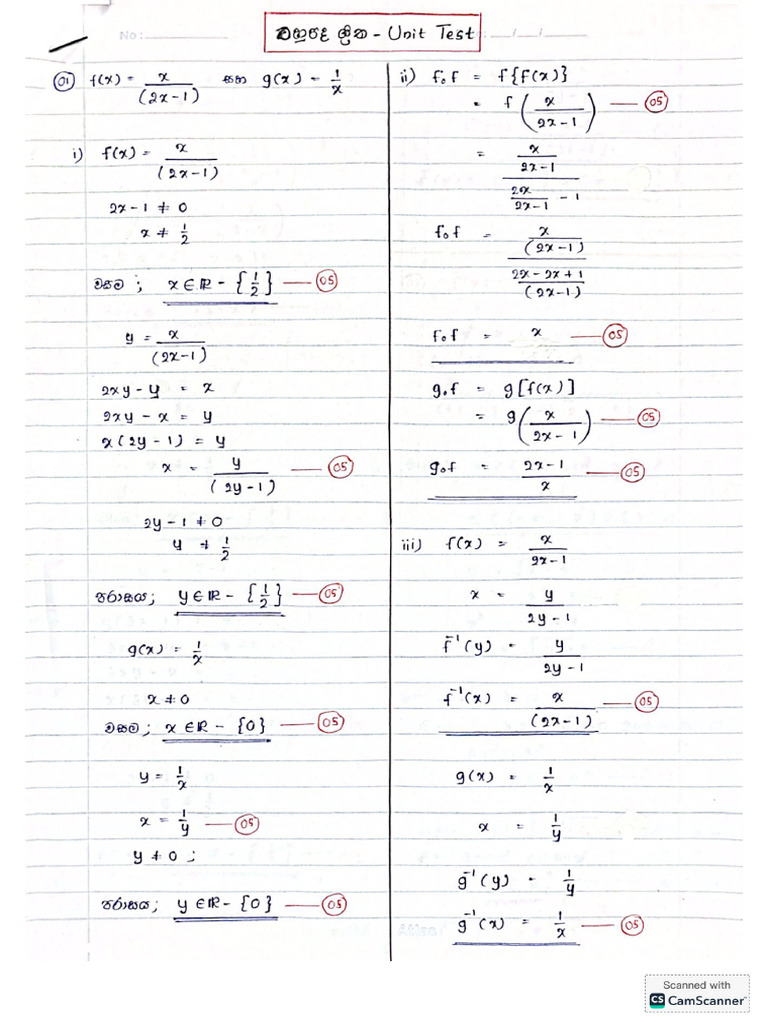 බහුපද ශ්‍රිත - Unit Test
No:
01 f(x) = x/(2x-1) සහ g(x) = 1/x
i) f(x) = x/(2x-1)
2x-1 ≠ 0
x ≠ 1/2
වසම ; x ∈ ℝ - {1/2} 05
y = x/(2x-1)
2xy - y = x
2xy - x = y
x(2y-1) = y
x = y/(2y-1) 05
2y-1 ≠ 0
y ≠ 1/2
පරාසය; y ∈ ℝ - {1/2} 05
g(x) = 1/x
x ≠ 0
වසම ; x ∈ ℝ - {0} 05
y = 1/x
x = 1/y 05
y ≠ 0 ;
පරාසය; y ∈ ℝ - {0} 05
ii) f₀f = f{f(x)}
= f(x/(2x-1)) 05
= (x/(2x-1))/(2x/(2x-1) - 1)
f₀f = (x/(2x-1))/((2x-2x+1)/(2x-1))
f₀f = x 05
g₀f = g[f(x)]
= g(x/(2x-1)) 05
g₀f = (2x-1)/x 05
iii) f(x) = x/(2x-1)
x = y/(2y-1)
f⁻¹(y) = y/(2y-1)
f⁻¹(x) = x/(2x-1) 05
g(x) = 1/x
x = 1/y
g⁻¹(y) = 1/y
g⁻¹(x) = 1/x 05
Scanned with
CS CamScanner